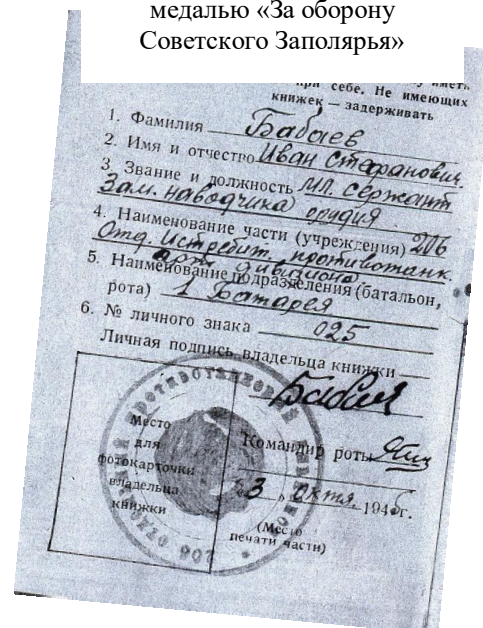 медалью «За оборону
Советского Заполярья»
при себе. Не имеющих
книжек — задерживать
1. Фамилия Бабаев
2. Имя и отчество Иван Стефанович.
3. Звание и должность Мл. сержант
Зам. наводчика орудия
4. Наименование части (учреждения) 206
Отд. Истребит. противотанк.
арт. дивизиона
5. Наименование подразделения (батальон,
рота) 1 Батарея
6. № личного знака 025
Личная подпись владельца книжки
Место
для
фотокарточки
владельца
книжки
Командир роты
„3“ Октя. 194 г.
(Место
печати части)